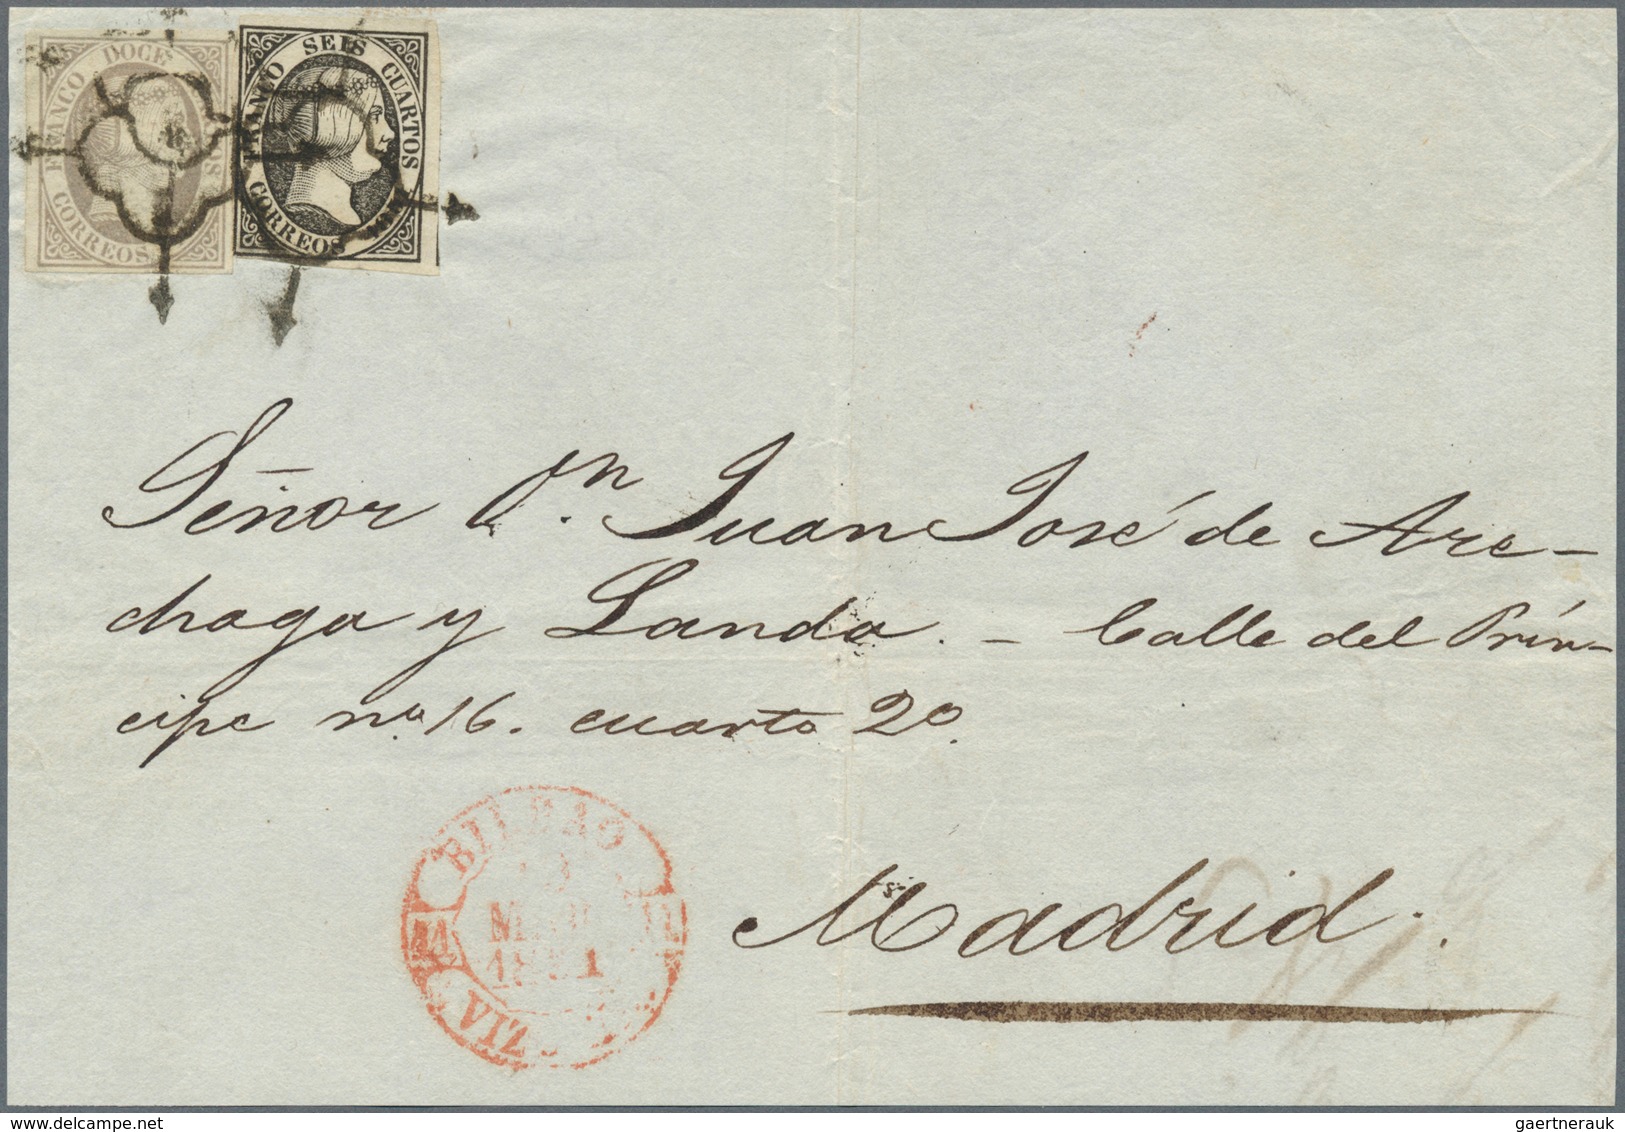 FRANCO DOCE CS
CORREOS
FRANCO SEIS CUARTOS
CORREOS
Señor Dn. Juan José de Are-
chaga y Landa. - Calle del Prín-
cipe no. 16. cuarto 2o.
Madrid.
BILBAO
1851
VIZ
gaertnerauk
delcampe.net